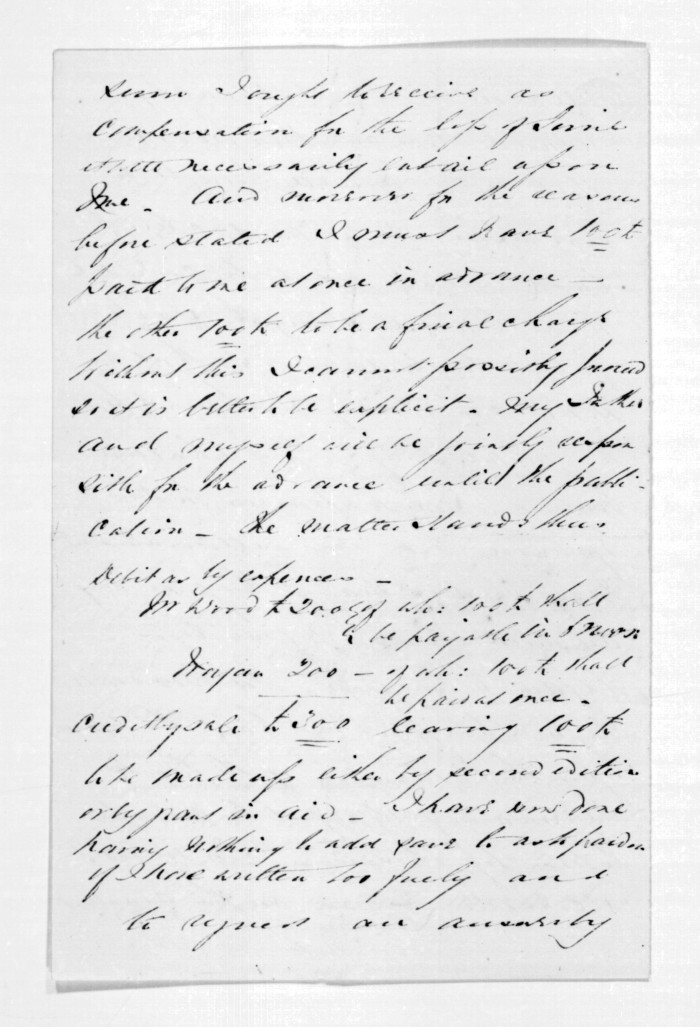 sum I ought to receive as
compensation for the loss of time
it will necessarily entail upon
me. And moreover for the reasons
before stated I must have 100£
paid to me at once in advance —
the other 100£ to be a final charge
Without this I cannot possibly proceed
so it is better to be explicit. My Father
and myself will be jointly respon
sible for the advance until the publi-
cation — The matter stands thus
Debit as by expences —
Mr Wood £ 200 of wh: 100£ shall
be payable in
200 — of wh: 100£ shall
be paid at once.
credit by sale £ 300 leaving 100£
to be made up either by second edition
or by pans in aid — I have now done
having nothing to add save to ask pardon
if I have written too freely and
to request an answer by